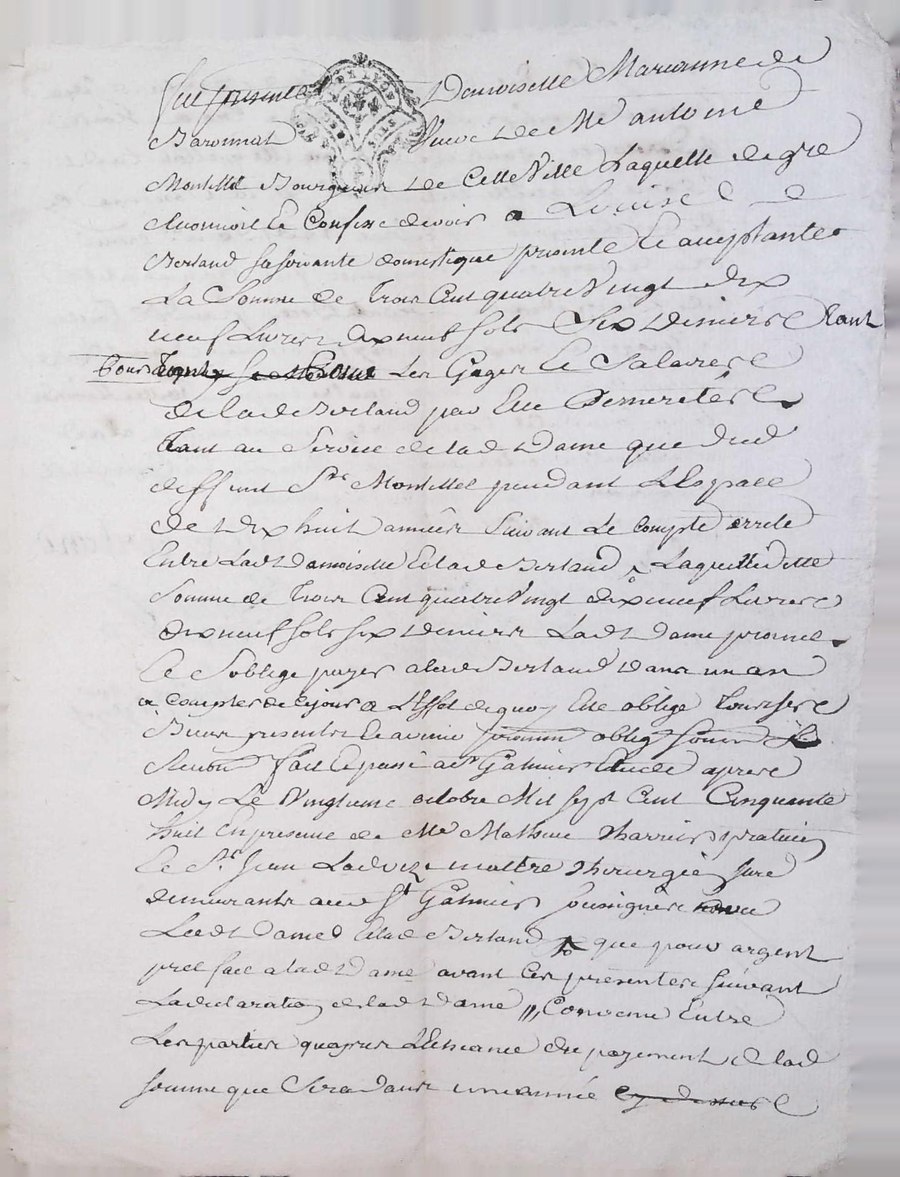 fut presente Demoiselle Marianne de
Baronnat veuve de Me antoine
Montellet Bourgeois de Cette Ville Laquelle de gre
a Confesse devoir a Louise
Berland sa servante domestique presente Et acceptante
La Somme de Trois Cent quatre Vingt dix
neuf Livres dix neuf sols Six deniers tant
Pour Les Gages Et Salaires
de lad Berland par Elle
tant au Service de lad Dame que dud
deffunt Sr Montellet pendant Lespace
de dix huit années Suivant Le Compte arrete
Entre Lad damoiselle Et lad Berland Laquelle ditte
Somme de Trois Cent quatre Vingt dix neuf Livres
dix neuf sols six deniers Lad Dame promet
Et Soblige payer a lad Berland dans un an
a Compter de Ce jour a L'effet de quoy Elle oblige tous ses
Biens presents Et avenir oblig soum
Renon fait Et passé a St Galmier Etude apres
Midy Le Vingtieme octobre Mil sept Cent Cinquante
huit En presence de Me Mathieu praticien
Et Sr Jean maître Chirurgien juré
demeurants aud St Galmier soussignés
Lad Dame Et lad Berland que pour argent
pret fait a lad Dame avant Ces presentes suivant
La declaration de lad Dame Convenu Entre
Les parties qu'apres L'Echeance du payement de lad
somme que Sera dans une année